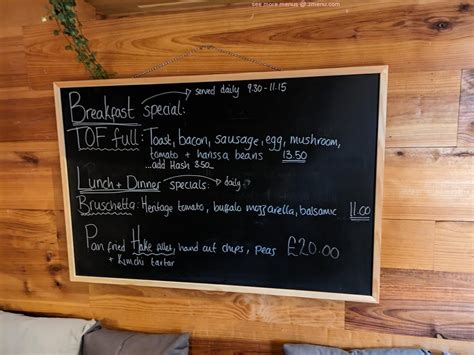 see more menus @ zmenu.com
Breakfast special: → served daily 9.30 - 11.15
TOF full: Toast, bacon, sausage, egg, mushroom,
tomato + harissa beans 13.50
...add Hash 3.50
Lunch + Dinner specials: → daily
Bruschetta: Heritage tomato, buffalo mozzarella, balsamic 11.00
Pan fried Hake fillet, hand cut chips, peas £20.00
+ Kimchi tartar